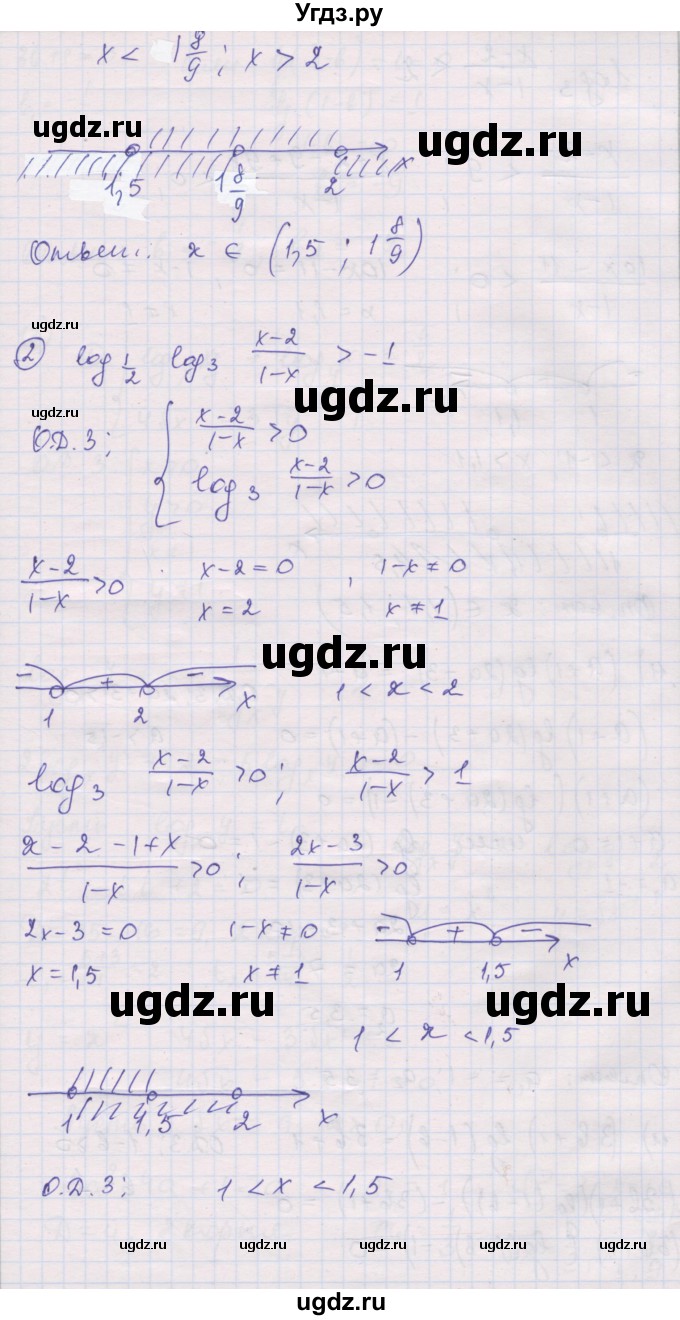 Угдз.ру
x < 1 8/9 ; x > 2
ugdz.ru ugdz.ru
1,5 1 8/9 2 x
Ответ: x ∈ (1,5 ; 1 8/9)
ugdz.ru
② log 1/2 log 3 (x-2)/(1-x) > -1
ugdz.ru ugdz.ru
О.Д.З; { (x-2)/(1-x) > 0
log 3 (x-2)/(1-x) > 0
(x-2)/(1-x) > 0 x-2=0 , 1-x≠0
x=2 x≠1
ugdz.ru
- + -
1 2 x 1 < x < 2
log 3 (x-2)/(1-x) > 0 ; (x-2)/(1-x) > 1
(x-2-1+x)/(1-x) > 0 ; (2x-3)/(1-x) > 0
2x-3=0 1-x≠0 - + -
x=1,5 x≠1 1 1,5 x
ugdz.ru ugdz.ru
1 < x < 1,5
1 1,5 2 x
О.Д.З; 1 < x < 1,5
ugdz.ru ugdz.ru ugdz.ru ugdz.ru
ugdz.ru